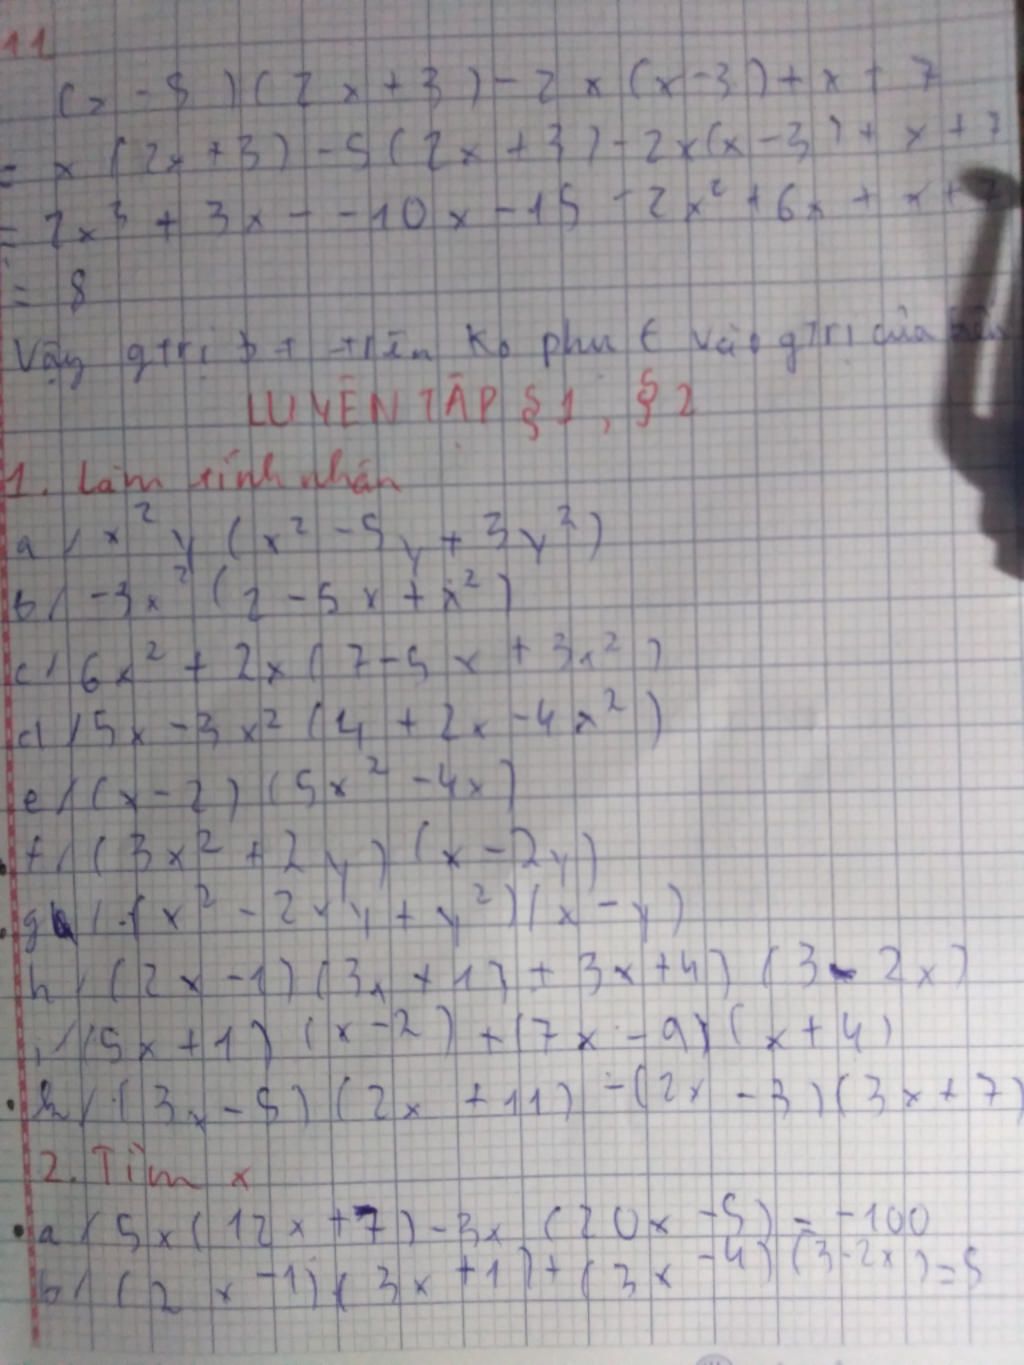 11
(x - 5)(2x + 3) - 2x(x - 3) + x + 7
= x(2x + 3) - 5(2x + 3) - 2x(x - 3) + x + 7
= 2x³ + 3x - - 10x - 15 - 2x² + 6x + x + 7
= 8
Vậy gtrị bt trên ko phụ t vào gtrị của
LUYỆN TẬP §1, §2
1. Làm tính nhân
a/ x²y(x² - 5y + 3y²)
b/ -3x²(2 - 5x + x²)
c/ 6x² + 2x(7 - 5x + 3x²)
d/ 5x - 3x²(4 + 2x - 4x²)
e/ (x - 2)(5x² - 4x)
f/ (3x² + 2y)(x - 2y)
g/ (x² - 2xy + y²)(x - y)
h/ (2x - 1)(3x + 1) + 3x + 4)(3 - 2x)
i/ (5x + 1)(x - 2) + (7x - 9)(x + 4)
k/ (3x - 5)(2x + 11) - (2x - 3)(3x + 7)
2. Tìm x
a/ 5x(12x + 7) - 3x(20x - 5) = -100
b/ (2x - 1)(3x + 1) + (3x - 4)(3 - 2x) = 5